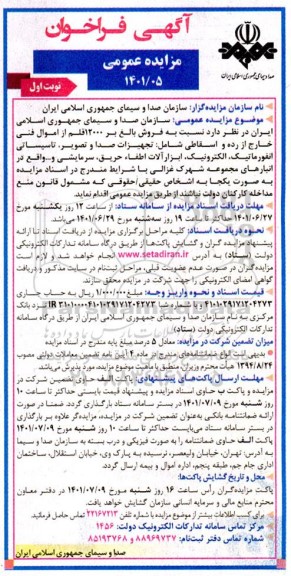 آگهی فراخوان
مزایده عمومی
۱۴۰۱/۰۵
نوبت اول
صدا و سیمای جمهوری اسلامی ایران
نام سازمان مزایده‌گزار: سازمان صدا و سیمای جمهوری اسلامی ایران
موضوع مزایده عمومی: سازمان صدا و سیمای جمهوری اسلامی
ایران در نظر دارد نسبت به فروش بالغ بر ۱۲۰۰۰ قلم از اموال فنی
خارج از رده و اسقاطی شامل: تجهیزات صدا و تصویر، تاسیساتی
انفورماتیک، الکترونیک، ابزارآلات اطفاء حریق، سرمایشی و... واقع در
انبارهای مجموعه شهرک غزالی با شرایط مندرج در اسناد مزایده
به صورت یکجا به اشخاص حقیقی/حقوقی که مشمول قانون منع
مداخله کارکنان دولت نباشند از طریق مزایده عمومی اقدام نماید.
مهلت دریافت اسناد مزایده از سامانه ستاد: از ساعت ۱۲ روز یکشنبه مورخ
۱۴۰۱/۰۶/۲۷ حداکثر تا ساعت ۱۹ روز سه‌شنبه مورخ ۱۴۰۱/۰۶/۲۹ می‌باشد.
نحوه دریافت اسناد: کلیه مراحل برگزاری مزایده از دریافت اسناد تا ارائه
پیشنهاد مزایده گران و گشایش پاکت‌ها از طریق درگاه سامانه تدارکات الکترونیکی
دولت (ستاد) به آدرس www.setadiran.ir انجام خواهد شد و لازم است
مزایده‌گران در صورت عدم عضویت قبلی، مراحل ثبت‌نام در سایت مذکور و دریافت
گواهی امضای الکترونیکی را جهت شرکت در مزایده محقق سازند.
قیمت اسناد و نحوه واریز وجه: مبلغ ۱/۰۰۰/۰۰۰ ریال به حساب جاری
مرکزی به نام سازمان صدا و سیمای جمهوری اسلامی ایران از طریق درگاه سامانه
تدارکات الکترونیکی دولت (ستاد)
میزان تضمین شرکت در مزایده: معادل ۵ درصد مبلغ پایه مندرج در اسناد مزایده
بدیهی است انواع ضمانتنامه‌های مندرج در ماده ۴ آیین نامه تضمین معاملات دولتی مصوب
۱۳۹۴/۸/۲۴ هیأت محترم وزیران منطبق با ماهیت موضوع مزایده مورد پذیرش می‌باشد.
مهلت ارسال پاکت‌های پیشنهادی: پاکت الف حاوی تضمین شرکت در
مزایده و پاکت ب حاوی اسناد مزایده و پیشنهاد قیمت بایستی حداکثر تا ساعت ۱۰
روز شنبه مورخ ۱۴۰۱/۰۷/۰۹ در بستر سامانه ستاد بارگذاری گردد. ضمنا در صورت
ارائه ضمانتنامه بانکی به‌عنوان تضمین شرکت در مزایده، مزایده‌گر علاوه بر بارگذاری
در بستر سامانه ستاد می‌بایست حداکثر تا ساعت ۱۰ روز شنبه مورخ ۱۴۰۱/۰۷/۰۹
پاکت الف حاوی ضمانتنامه را به صورت فیزیکی و درب بسته به سازمان صدا و سیما
به آدرس: تهران، خیابان ولیعصر، نرسیده به پارک وی، خیابان استقلال، ساختمان
اداری جام جم، طبقه پنجم، اداره اموال و بیمه ارسال گردد.
محل و تاریخ گشایش پاکت‌ها:
پاکت مزایده‌گران رأس ساعت ۱۶ روز شنبه مورخ ۱۴۰۱/۰۷/۰۹ در دفتر معاون
محترم منابع مالی و سرمایه انسانی سازمان گشایش خواهد یافت.
برای کسب اطلاعات بیشتر از موضوع مزایده با شماره تلفن ۲۲۱۶۷۲۱۳ تماس حاصل فرمائید.
مرکز تماس سامانه تدارکات الکترونیک دولت: ۱۴۵۶
شماره تماس دفتر ثبت‌نام: ۸۸۹۶۹۷۳۷ و ۸۵۱۹۳۷۶۸
صدا و سیمای جمهوری اسلامی ایران